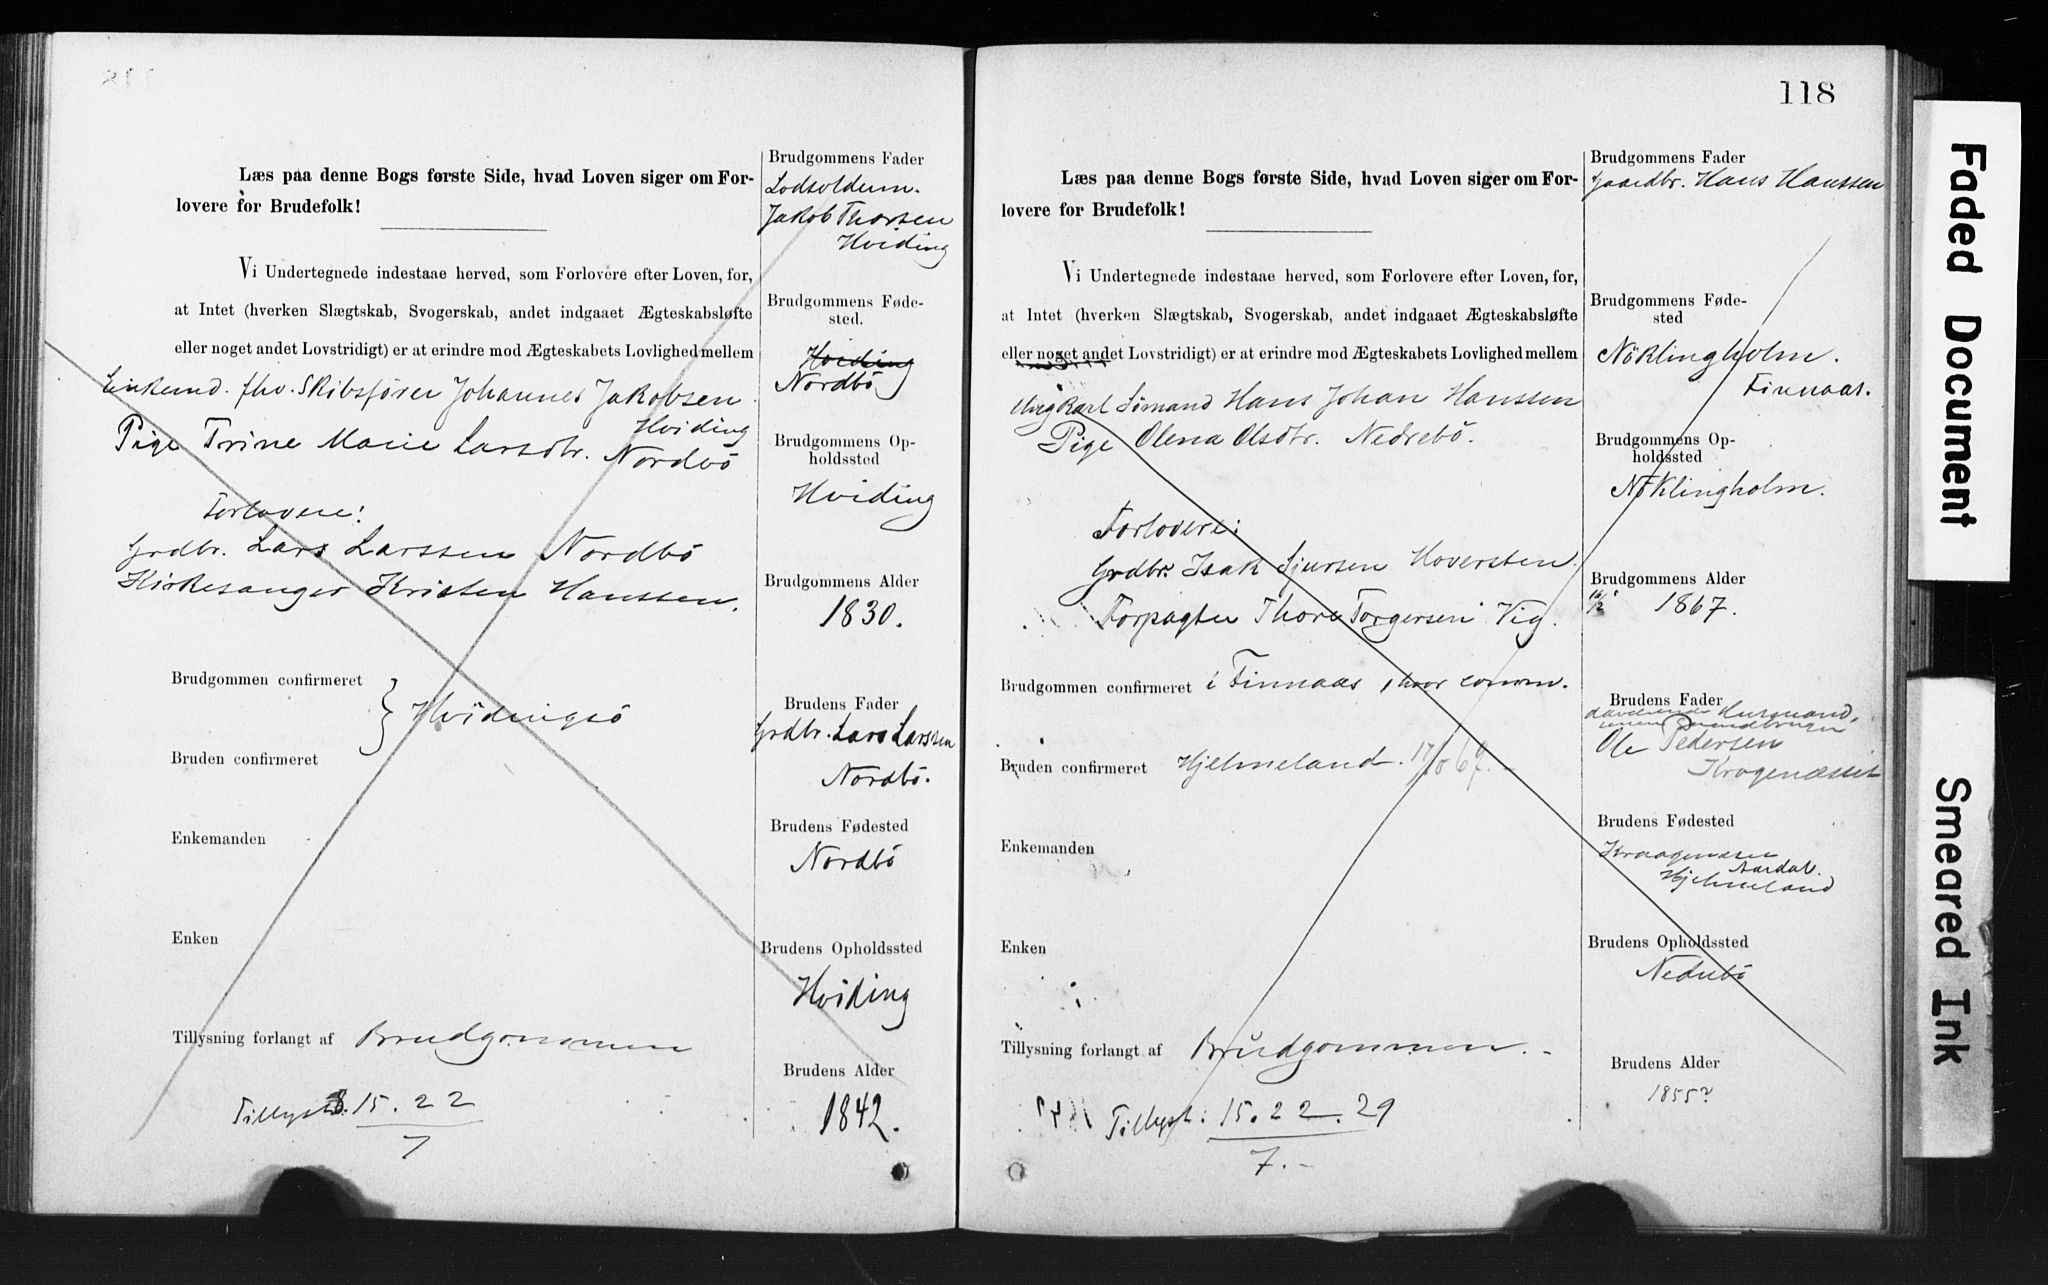 Læs paa denne Bogs første Side, hvad Loven siger om For-
lovere for Brudefolk!
Vi Undertegnede indestaae herved, som Forlovere efter Loven, for,
at Intet (hverken Slægtskab, Svogerskab, andet indgaaet Ægteskabsløfte
eller noget andet Lovstridigt) er at erindre mod Ægteskabets Lovlighed mellem
Enkemd. fhv. Skibsfører Johannes Jakobsen
Hviding
Pige Trine Marie Larsdtr. Nordbö
Forlovere:
Grdbr. Lars Larssen Nordbö
Kirkesanger Kristen Hanssen.
Brudgommen confirmeret
Hvidingsö
Bruden confirmeret
Enkemanden
Enken
Tillysning forlangt af Brudgommen
Tillyst: 8. 15. 22
7
Brudgommens Fader
Lodsoldem.
Jakob Thorsen
Hviding
Brudgommens Føde-
sted.
Hviding
Nordbö
Brudgommens Op-
holdssted
Hviding
Brudgommens Alder
1830.
Brudens Fader
Grdbr. Lars Larssen
Nordbö.
Brudens Fødested
Nordbö
Brudens Opholdssted
Hviding
Brudens Alder
1842.
118
Læs paa denne Bogs første Side, hvad Loven siger om For-
lovere for Brudefolk!
Vi Undertegnede indestaae herved, som Forlovere efter Loven, for,
at Intet (hverken Slægtskab, Svogerskab, andet indgaaet Ægteskabsløfte
eller noget andet Lovstridigt) er at erindre mod Ægteskabets Lovlighed mellem
Ungkarl Sömand Hans Johan Hanssen
Pige Olena Olsdtr. Nedrebö.
Forlovere:
Grdbr. Isak Sjursen Hoversten.
Forpagter Thore Torgersen Vig.
Brudgommen confirmeret i Finnaas, hvor comm.
Bruden confirmeret Hjelmeland. 17/10 69.
Enkemanden
Enken
Tillysning forlangt af Brudgommen.
Tillyst: 15. 22. 29
7.
Brudgommens Fader
Gaardbr. Hans Hanssen
Brudgommens Føde-
sted
Nöklingholm.
Finnaas.
Brudgommens Op-
holdssted
Nöklingholm.
Brudgommens Alder
16/12 1867.
Brudens Fader
Husmand,
Ole Pedersen
Kragenæsset
Brudens Fødested
Kraagenæsset
Aardal.
Hjelmeland
Brudens Opholdssted
Nedrebö
Brudens Alder
1855?
Faded Document
Smeared Ink